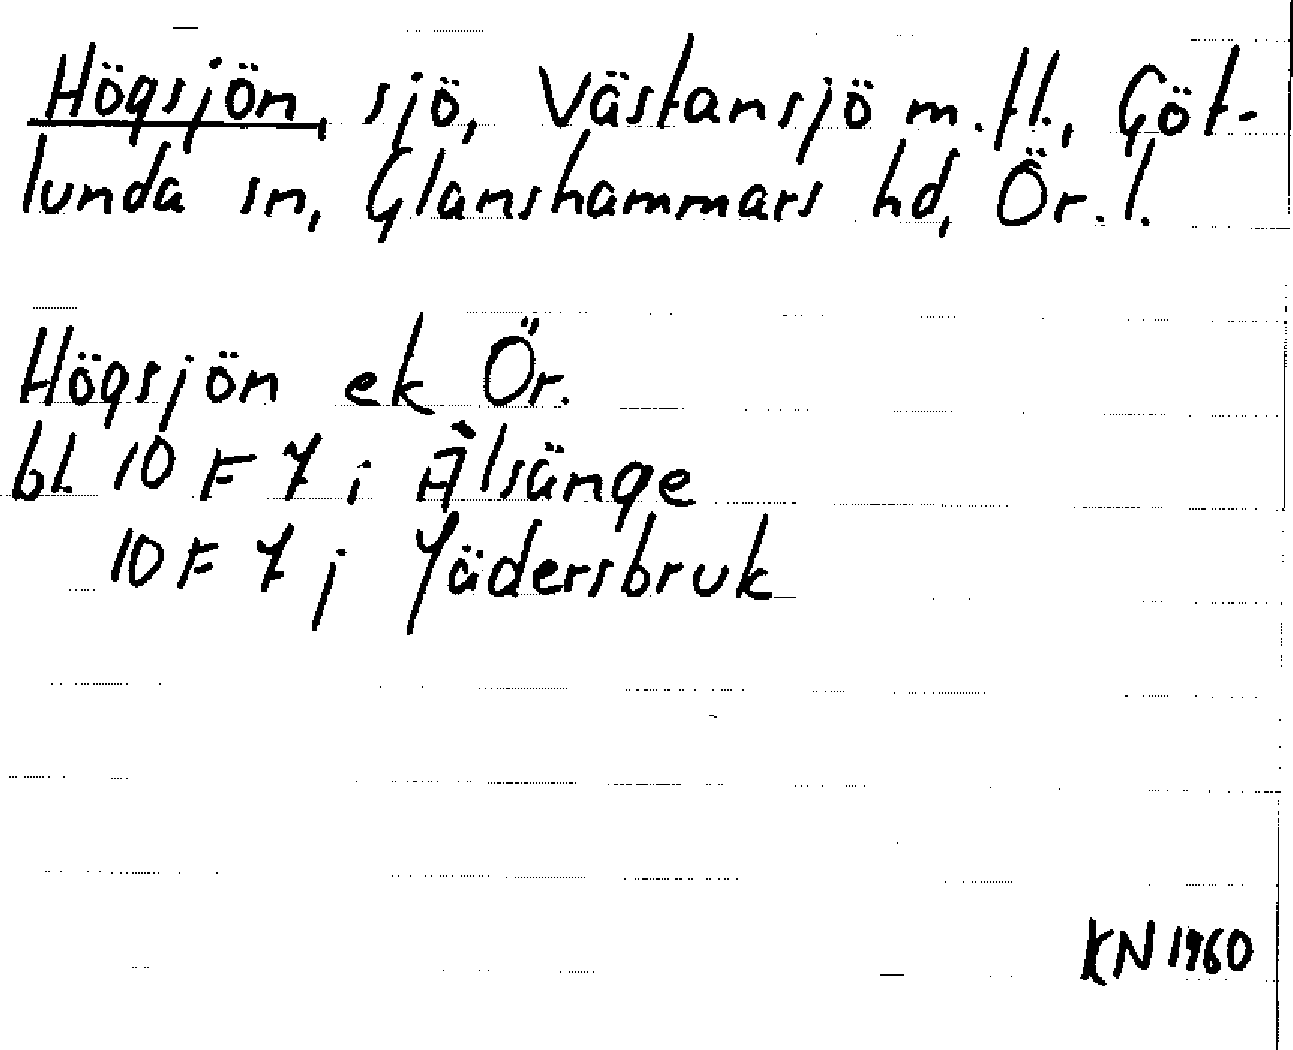 Högsjön, sjö, Västansjö m.fl., Göt-
lunda sn, Glanshammars hd, Ör.l.
Högsjön ek Ör.
bl. 10 F 7 i Älsänge
10 F 7 j Jädersbruk
KN 1960